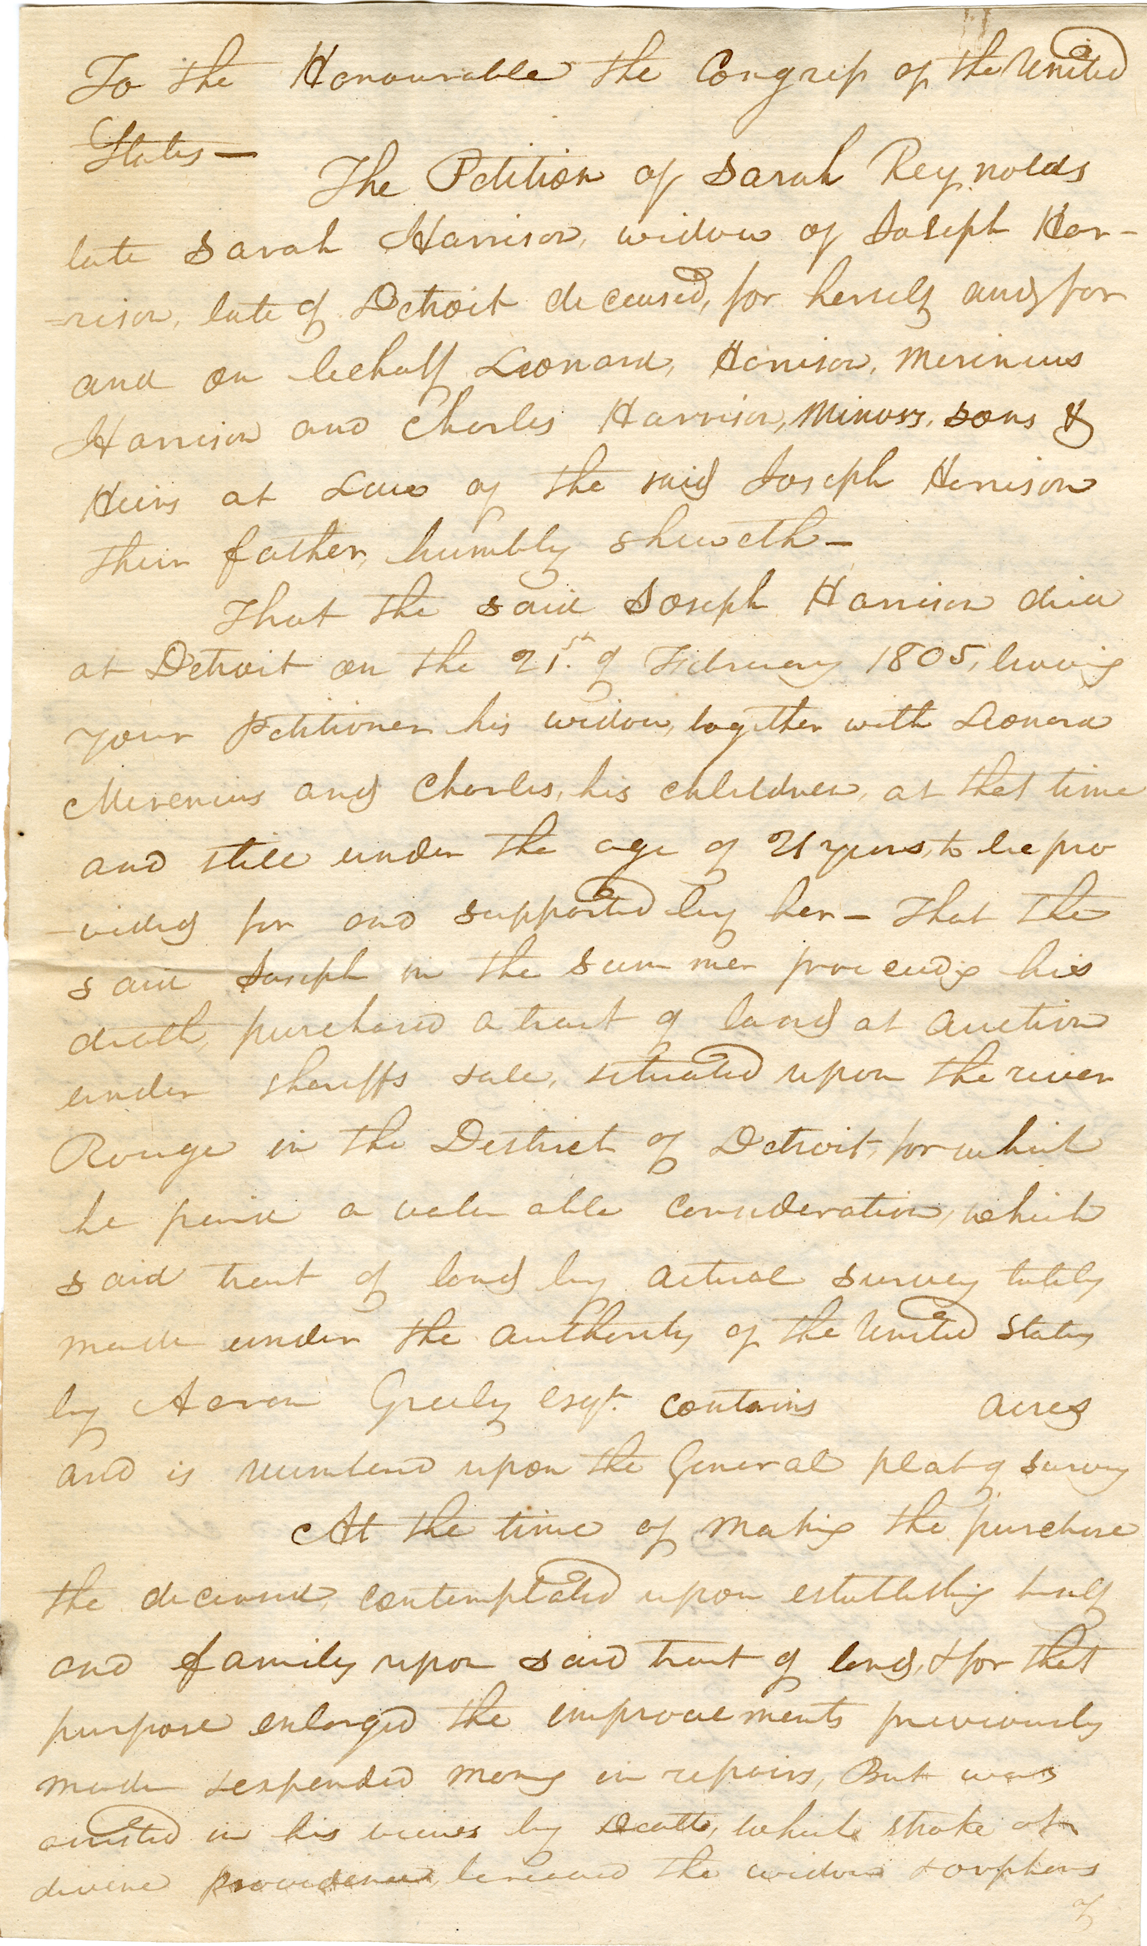 To the Honourable the Congress of the United
States—
The Petition of Sarah Reynolds
late Sarah Harrison, widow of Joseph Har-
-rison, late of Detroit deceased, for herself and for
and on behalf Leonard, Harrison, Merinius
Harrison and Charles Harrison, Minors, sons &
Heirs at Law of the said Joseph Harrison
their father, humbly sheweth—
That the said Joseph Harrison died
at Detroit on the 21st. of February 1805, leaving
your Petitioner his widow, together with Leonard
Merenius and Charles, his children, at that time
and still under the age of 21 years, to be pro
-vided for and supported by her— That the
said Joseph in the Summer preceeding his
death, purchased a tract of land at auction
under sheriffs sale, situated upon the river
Rouge in the District of Detroit, for which
he paid a valuable consideration, which
said tract of land by actual survey lately
made under the authority of the United States
by Aaron Greely esqr. contains acres
and is numbered upon the General plat of survey
At the time of making the purchase
the deceased, contemplated upon establishing himself
and family upon said tract of land, & for that
purpose enlarged the improvements previously
made & expended money in repairs, But was
arrested in his views by Death, which stroke of
divine providence, bereaved the widow & orphans
of